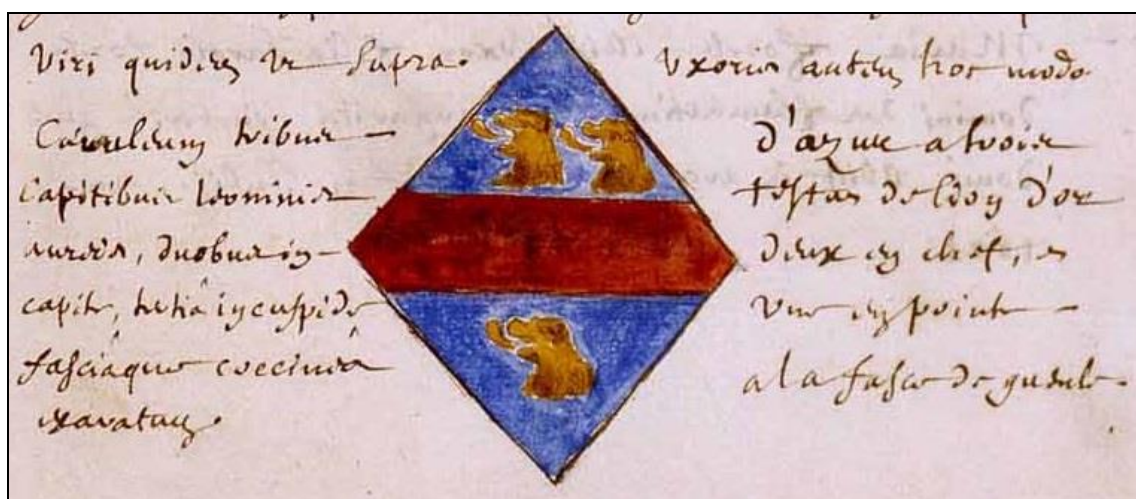 Viri quidem ut supra.
Cæruleum tribus
Capitibus leoninis
aureis, duobus in
capite, tertiâ in cuspide
fasciâque coccineâ
exaratum.
Uxoris autem hoc modo
d'azur a trois
testes de Lion d'or
deux en chef, et
une en pointe
a la fasce de gueule.